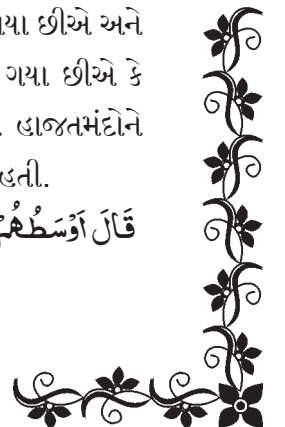 ગયા છીએ અને
ગયા છીએ કે
હાજતમંદોને
હતી.
قَالَ اَوْسَطُهُمْ